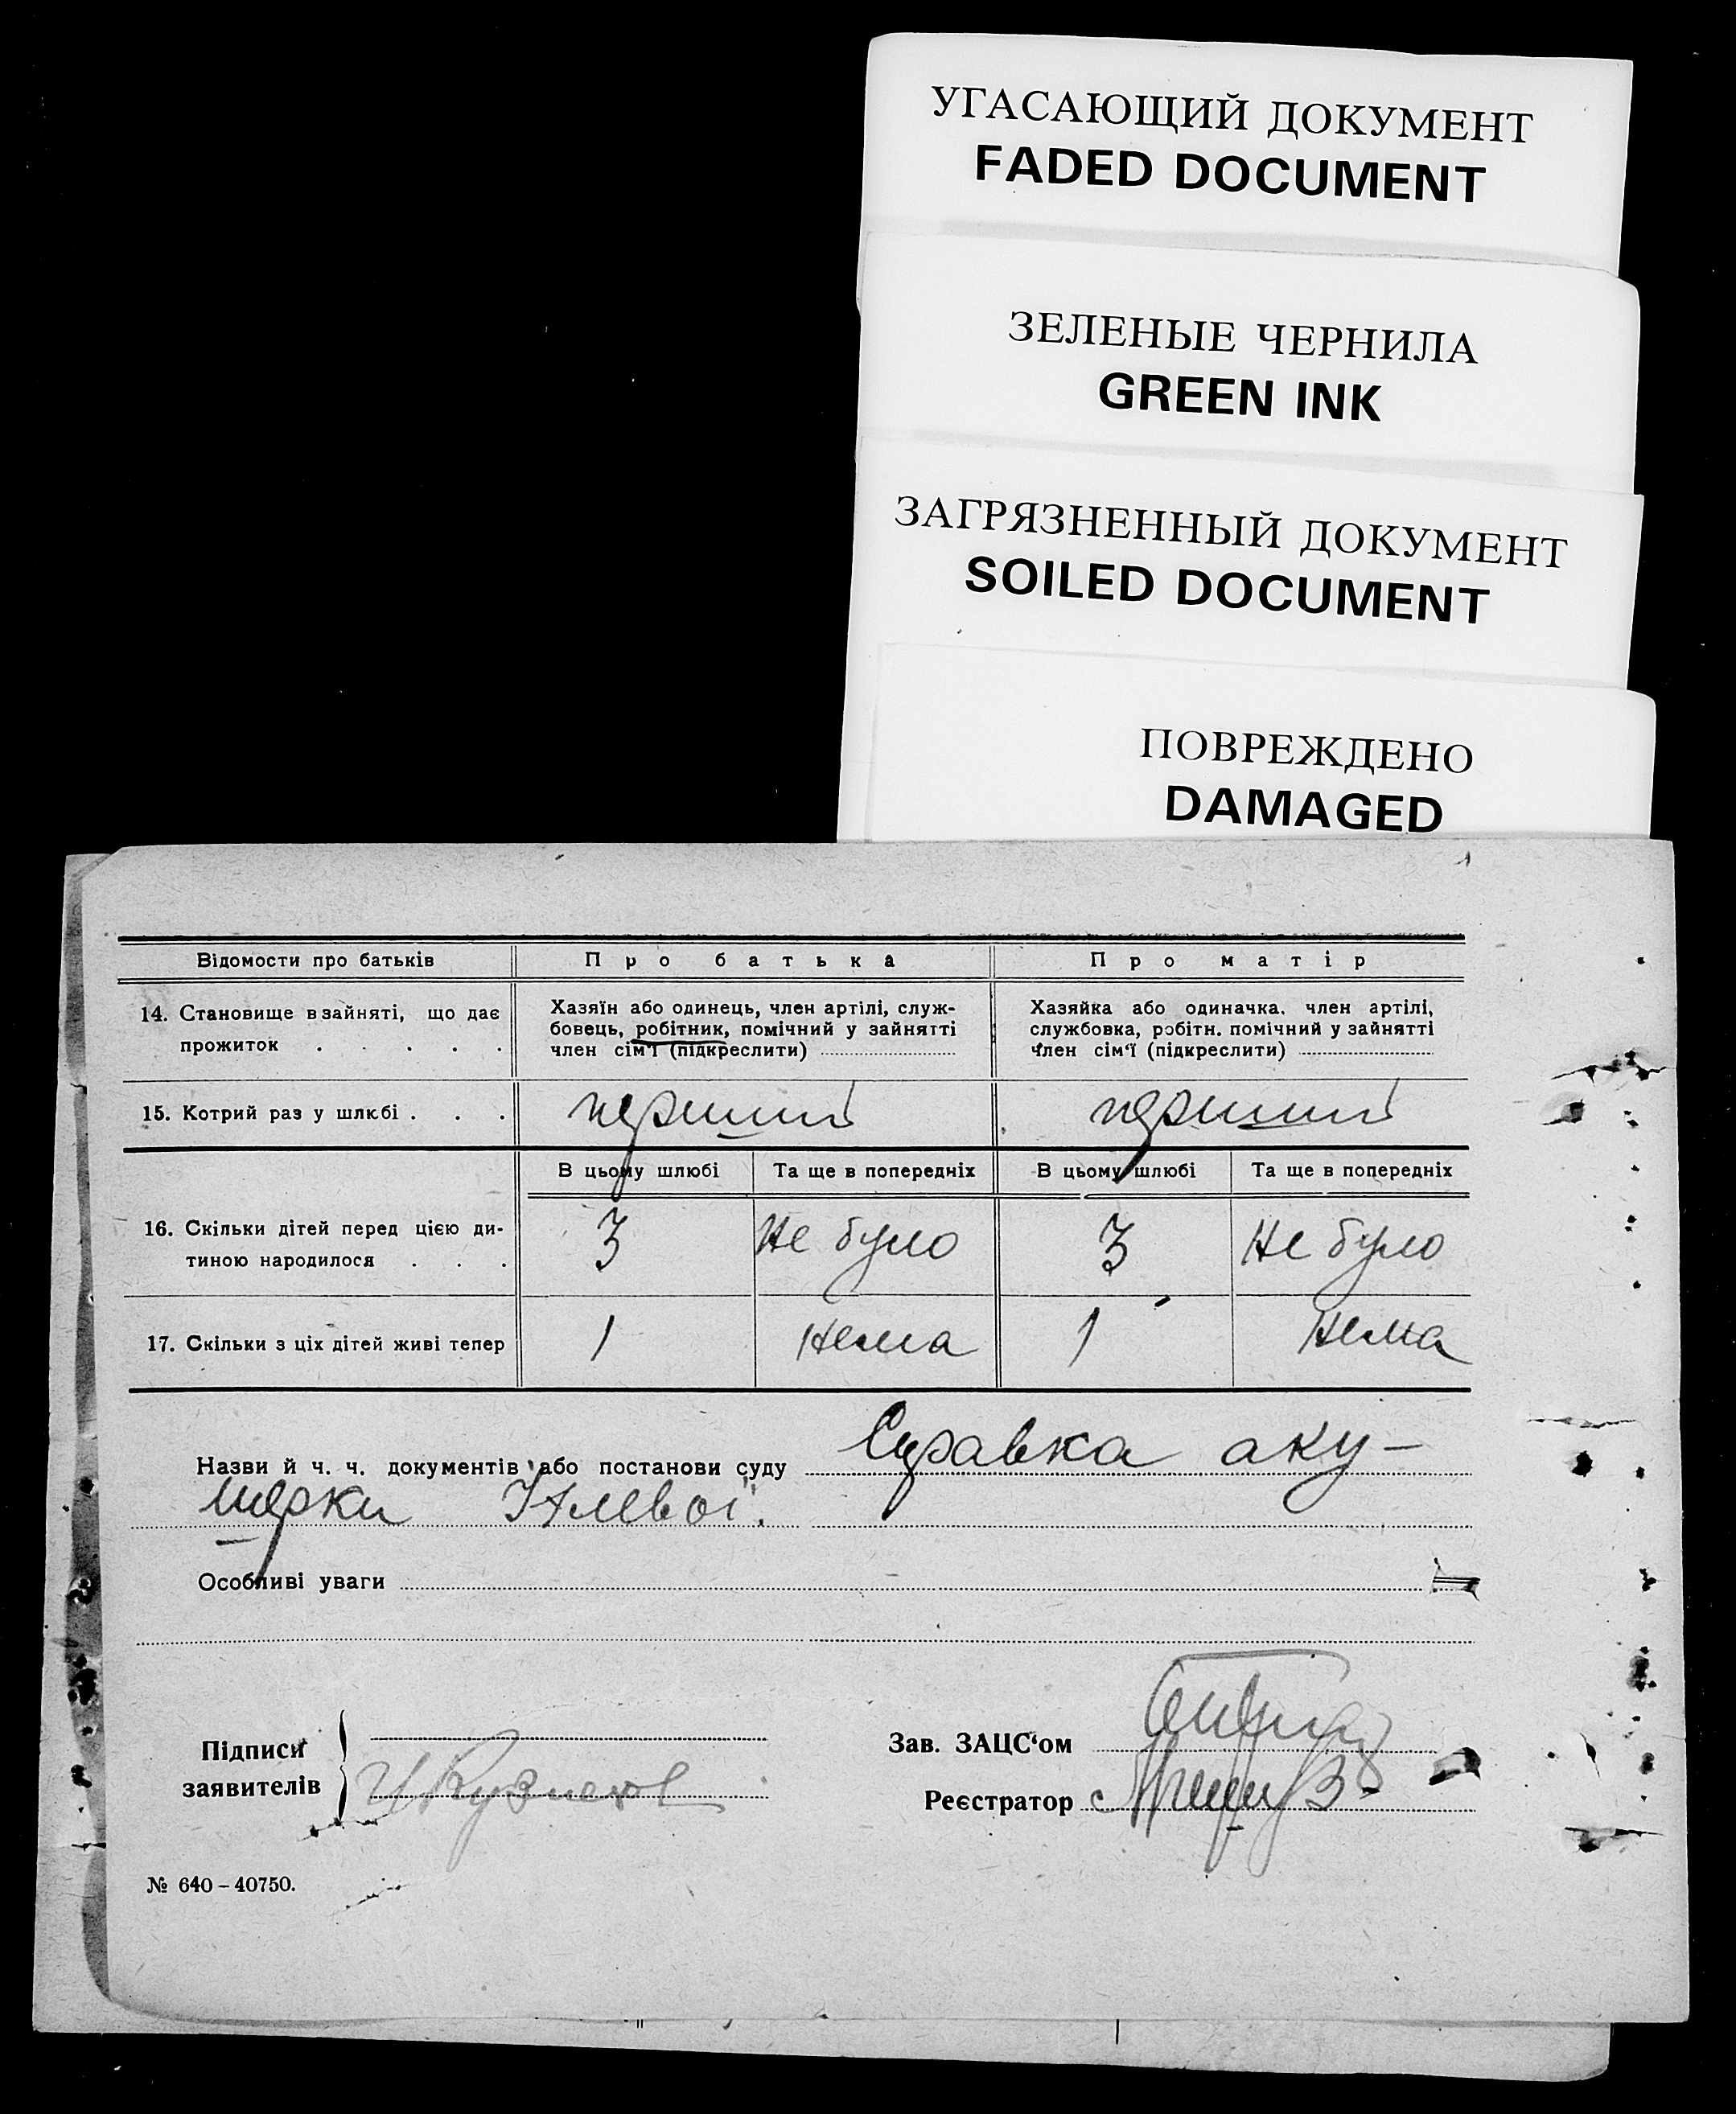 УГАСАЮЩИЙ ДОКУМЕНТ
FADED DOCUMENT
ЗЕЛЕНЫЕ ЧЕРНИЛА
GREEN INK
ЗАГРЯЗНЕННЫЙ ДОКУМЕНТ
SOILED DOCUMENT
ПОВРЕЖДЕНО
DAMAGED
Відомости про батьків Про батька Про матір
14. Становище в зайняті, що дає
прожиток . . . . .
Хазяїн або одинець, член артілі, служ-
бовець, робітник, помічний у зайнятті
член сім'ї (підкреслити)
Хазяйка або одиначка. член артілі,
службовка, робітн. помічний у зайнятті
член сім'ї (підкреслити)
15. Котрий раз у шлюбі . . . перший перший
В цьому шлюбі Та ще в попередніх В цьому шлюбі Та ще в попередніх
16. Скільки дітей перед цією ди-
тиною народилося . . .
3 Не було 3 Не було
17. Скільки з ціх дітей живі тепер 1 Нема 1 Нема
Назви й ч. ч. документів або постанови суду Справка аку-
шерки
Особливі уваги
Підписи
заявителів
Зав. ЗАЦС'ом
Реєстратор
№ 640-40750.